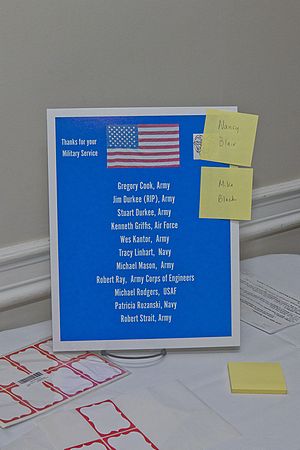 Thanks for your
Military Service
Nancy
Blair
Mike
Black
Gregory Cook, Army
Jim Durkee (RIP), Army
Stuart Durkee, Army
Kenneth Griffis, Air Force
Wes Kantor, Army
Tracy Linhart, Navy
Michael Mason, Army
Robert Ray, Army Corps of Engineers
Michael Rodgers, USAF
Patricia Rozanski, Navy
Robert Strait, Army